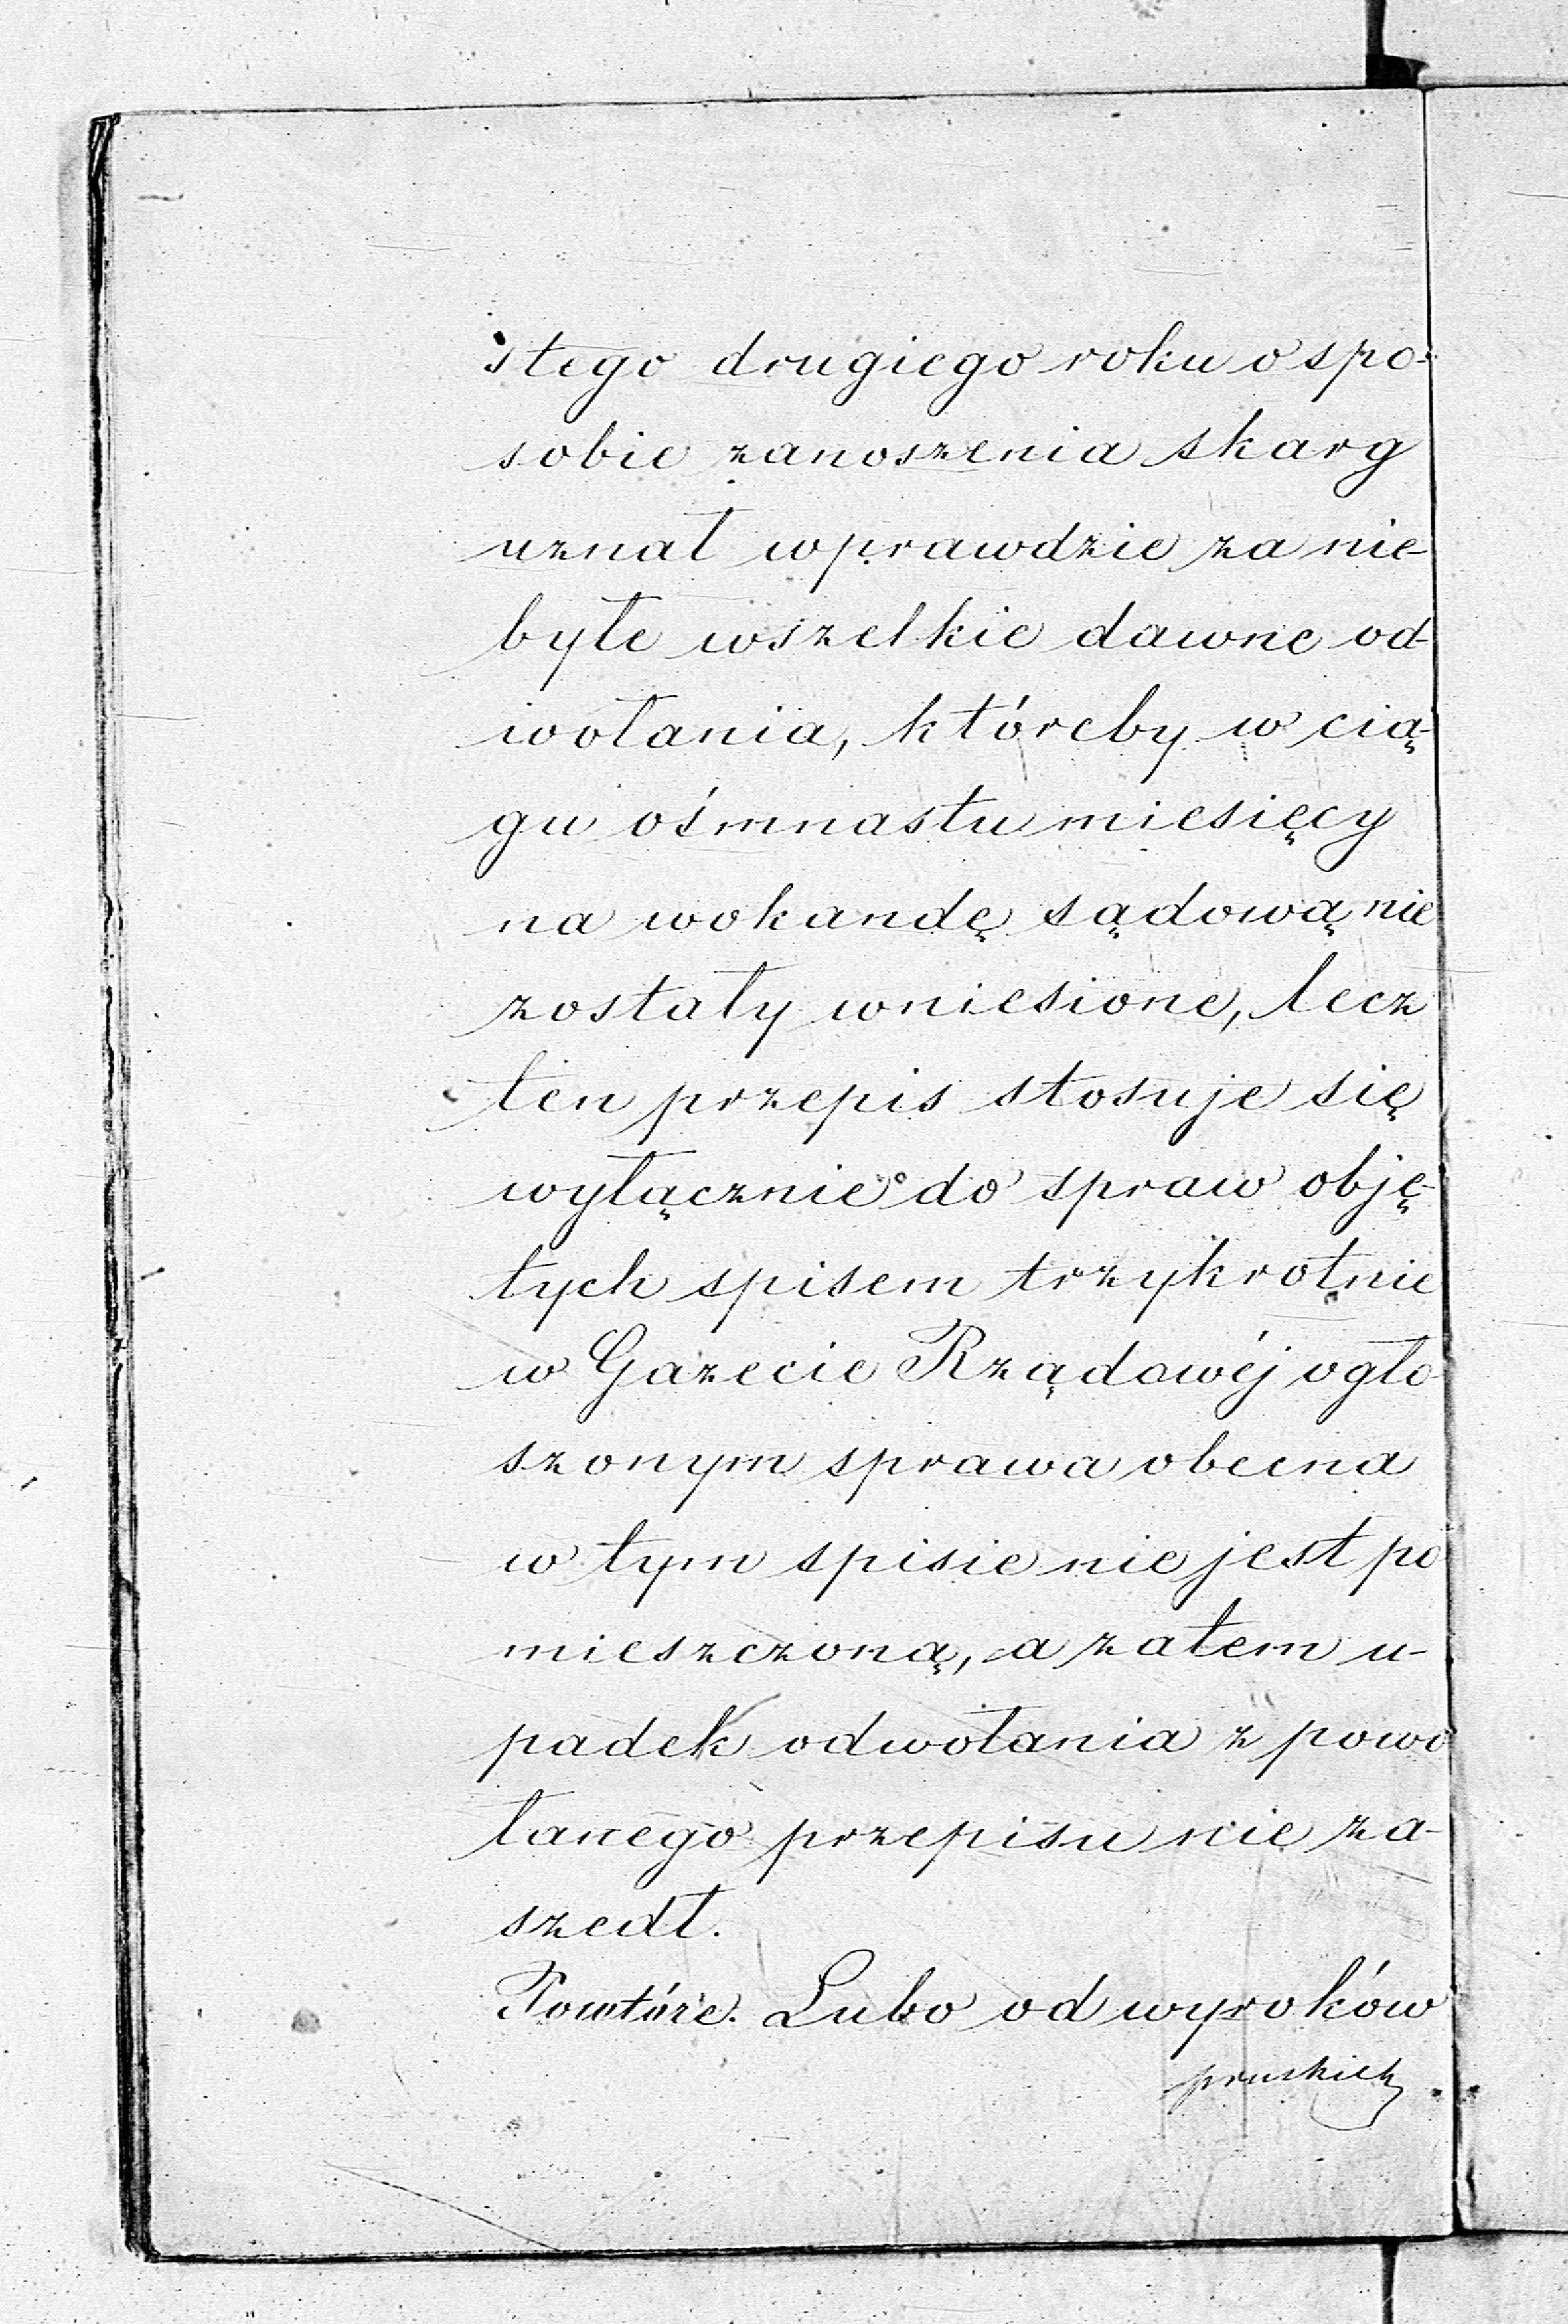 stego drugiego roku o spo-
sobie zanoszenia skarg
uznał wprawdzie za nie-
byłe wszelkie dawne od-
wołania, któreby w cią-
gu ośmnastu miesięcy
na wokandę sądową nie
zostały wniesione, lecz
ten przepis stosuje się
wyłącznie do spraw obję-
tych spisem trzykrotnie
w Gazecie Rządowéj ogło-
szonym sprawa obecna
w tym spisie nie jest po
mieszczoną, a zatem u-
padek odwołania z powo
łanego przepisu nie za-
szedł.
Powtóre. Lubo od wyroków
pruskich